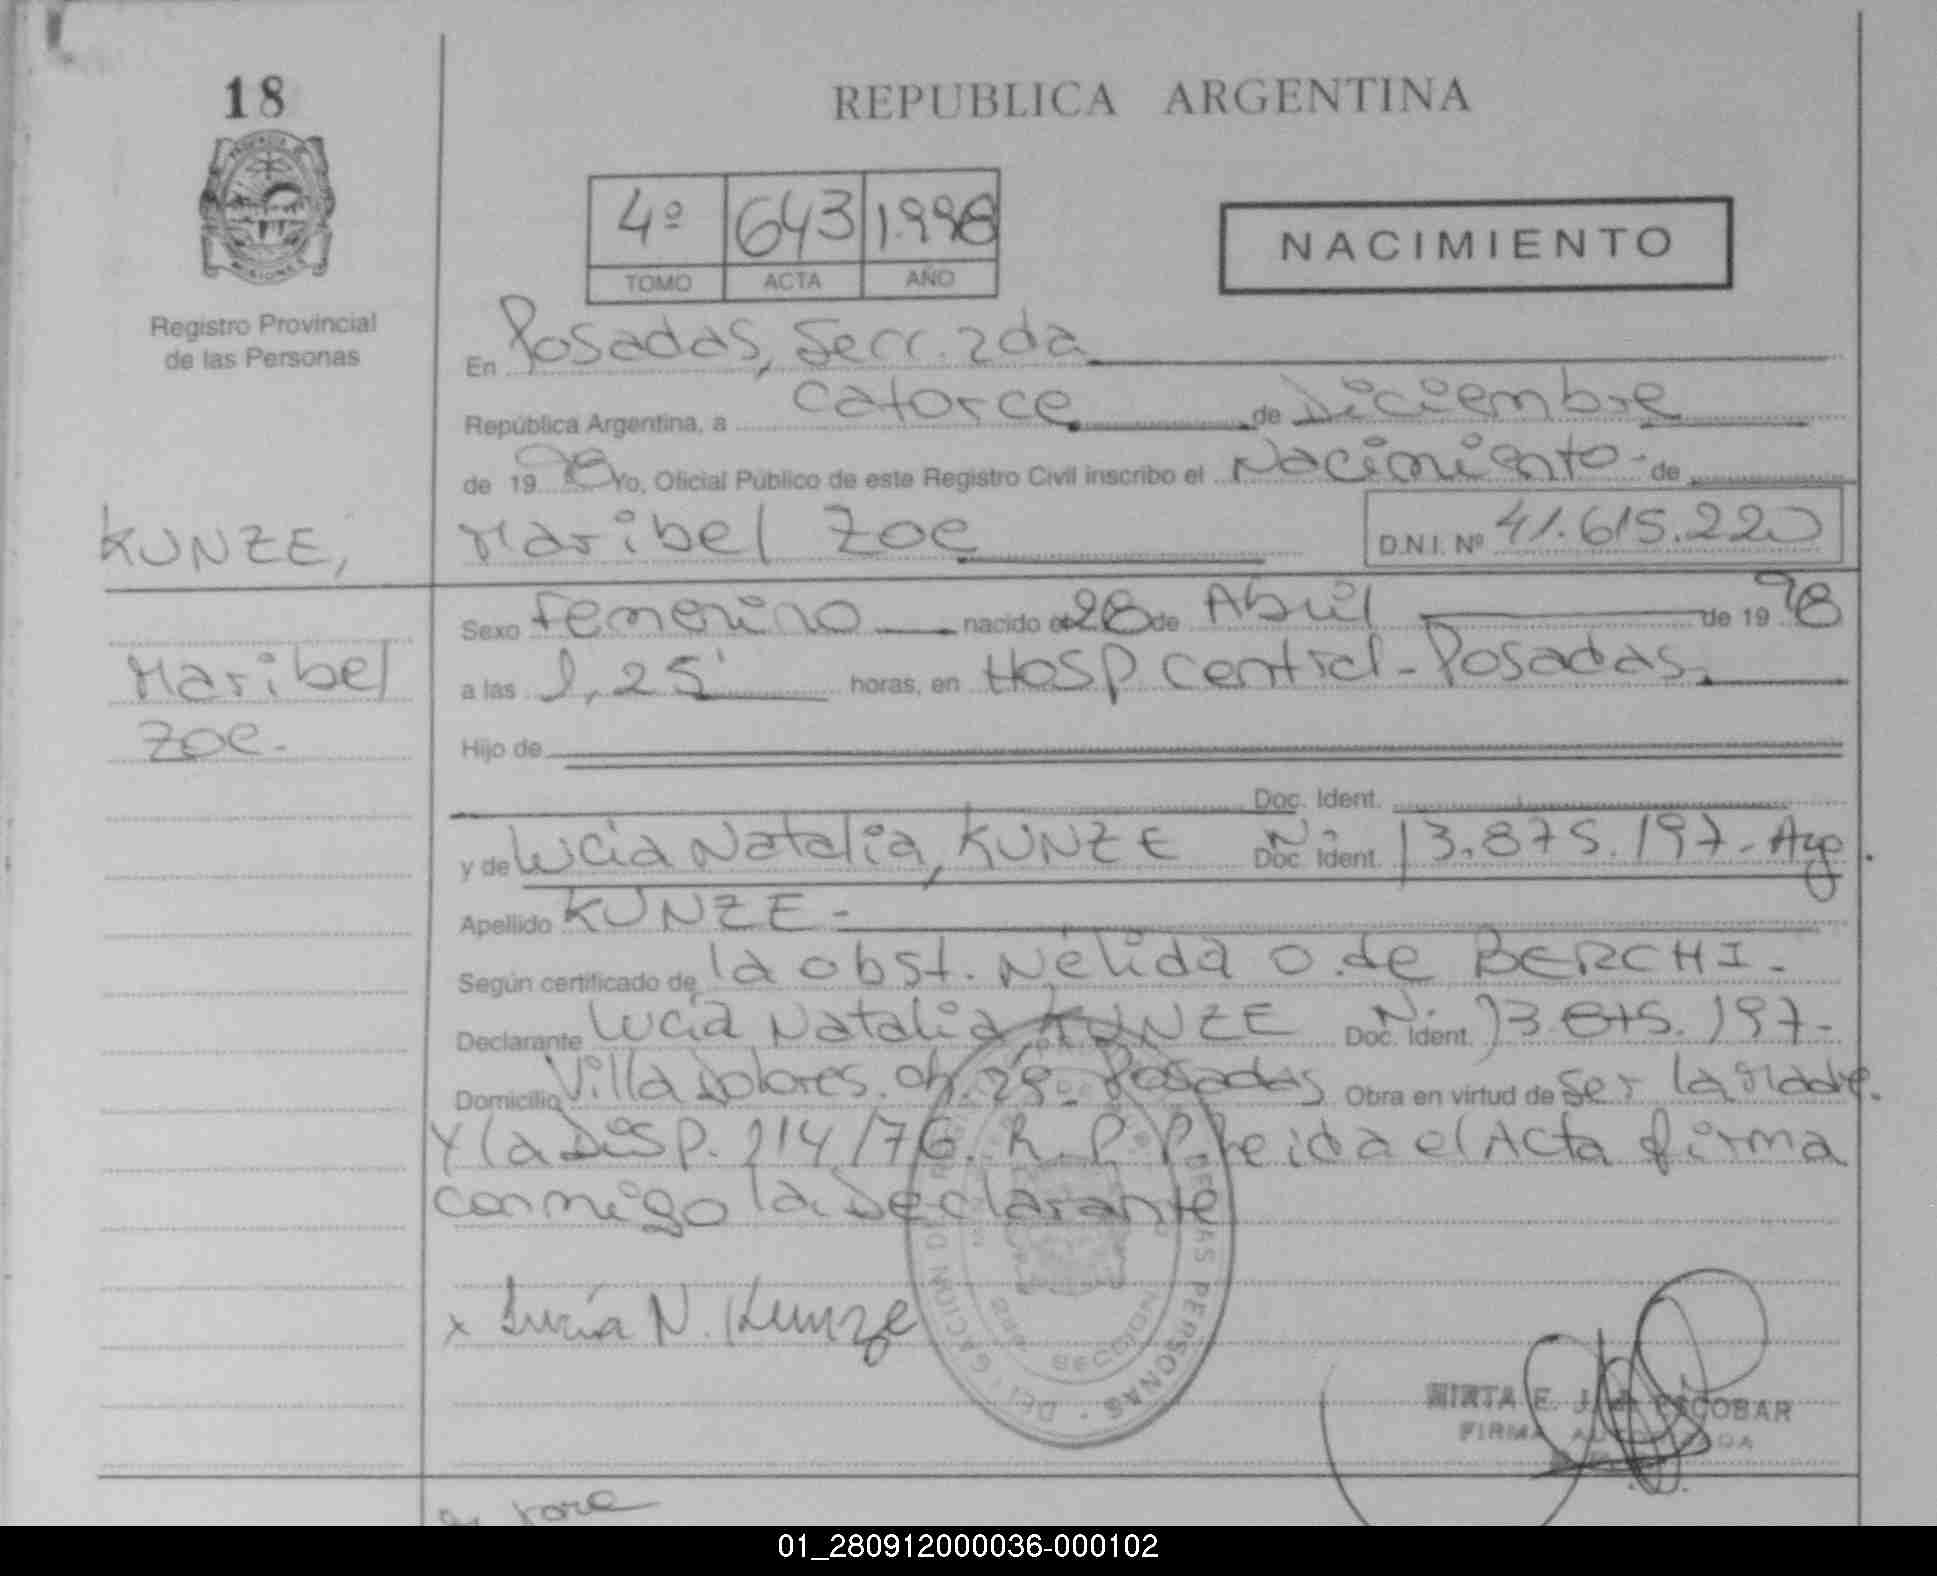 18
REPUBLICA ARGENTINA
4º 643 1.998
TOMO ACTA AÑO
NACIMIENTO
Registro Provincial
de las Personas
En Posadas, Secc. 2da
República Argentina, a catorce de Diciembre
de 1998 Yo, Oficial Público de este Registro Civil inscribo el Nacimiento - de
KUNZE, Maribel Zoe D.N.I. Nº 41.615.220
Sexo Femenino nacido el 28 de Abril de 1998
Maribel
a las 1,25' horas, en Hosp Central - Posadas.
Zoe.-
Hijo de
Doc. Ident.
y de Lucia Natalia, KUNZE Doc. Ident. N. 13.875.197.- Arg.
Apellido KUNZE -
Según certificado de la obst. Nélida O. de BERCHI.-
Declarante Lucia Natalia KUNZE Doc. Ident. N. 13.875.197.-
Domicilio Villa Dolores. ch. 29- Posadas Obra en virtud de ser la Madre.
Y la Disp. 114/76. R. P. P. Leida el Acta firma
conmigo la Declarante
x Lucía N. Kunze
DE LAS PERSONAS
SECCION
MIRTA E. J. ESCOBAR
FIRMA AUTORIZADA
01_280912000036-000102